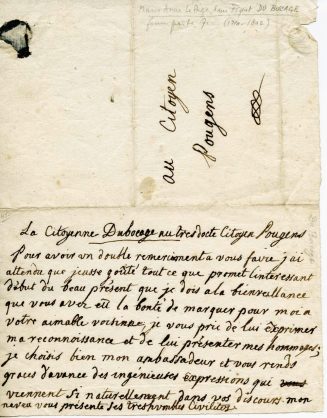 Marie Anne Le Page, dame Fiquet DU BOCAGE
(1710-1802)
au Citoyen
Pougens
La Citoyenne Dubocage au tres docte Citoyen Pougens
Pour avoir un double remerciment a vous faire j'ai
attendu que j'eusse goûté tout ce que promet l'interessant
début du beau présent que je dois a la bienveillance
que vous avez eû la bonté de marquer pour moi a
votre aimable voisine, je vous prie de lui exprimer
ma reconnoissance et de lui présenter mes hommages;
je choisis bien mon ambassadeur et vous rends
graces d'avance des ingenieuses expressions qui
viennent si naturellement dans vos discours. mon
neveu vous présente ses tres humbles Civilités